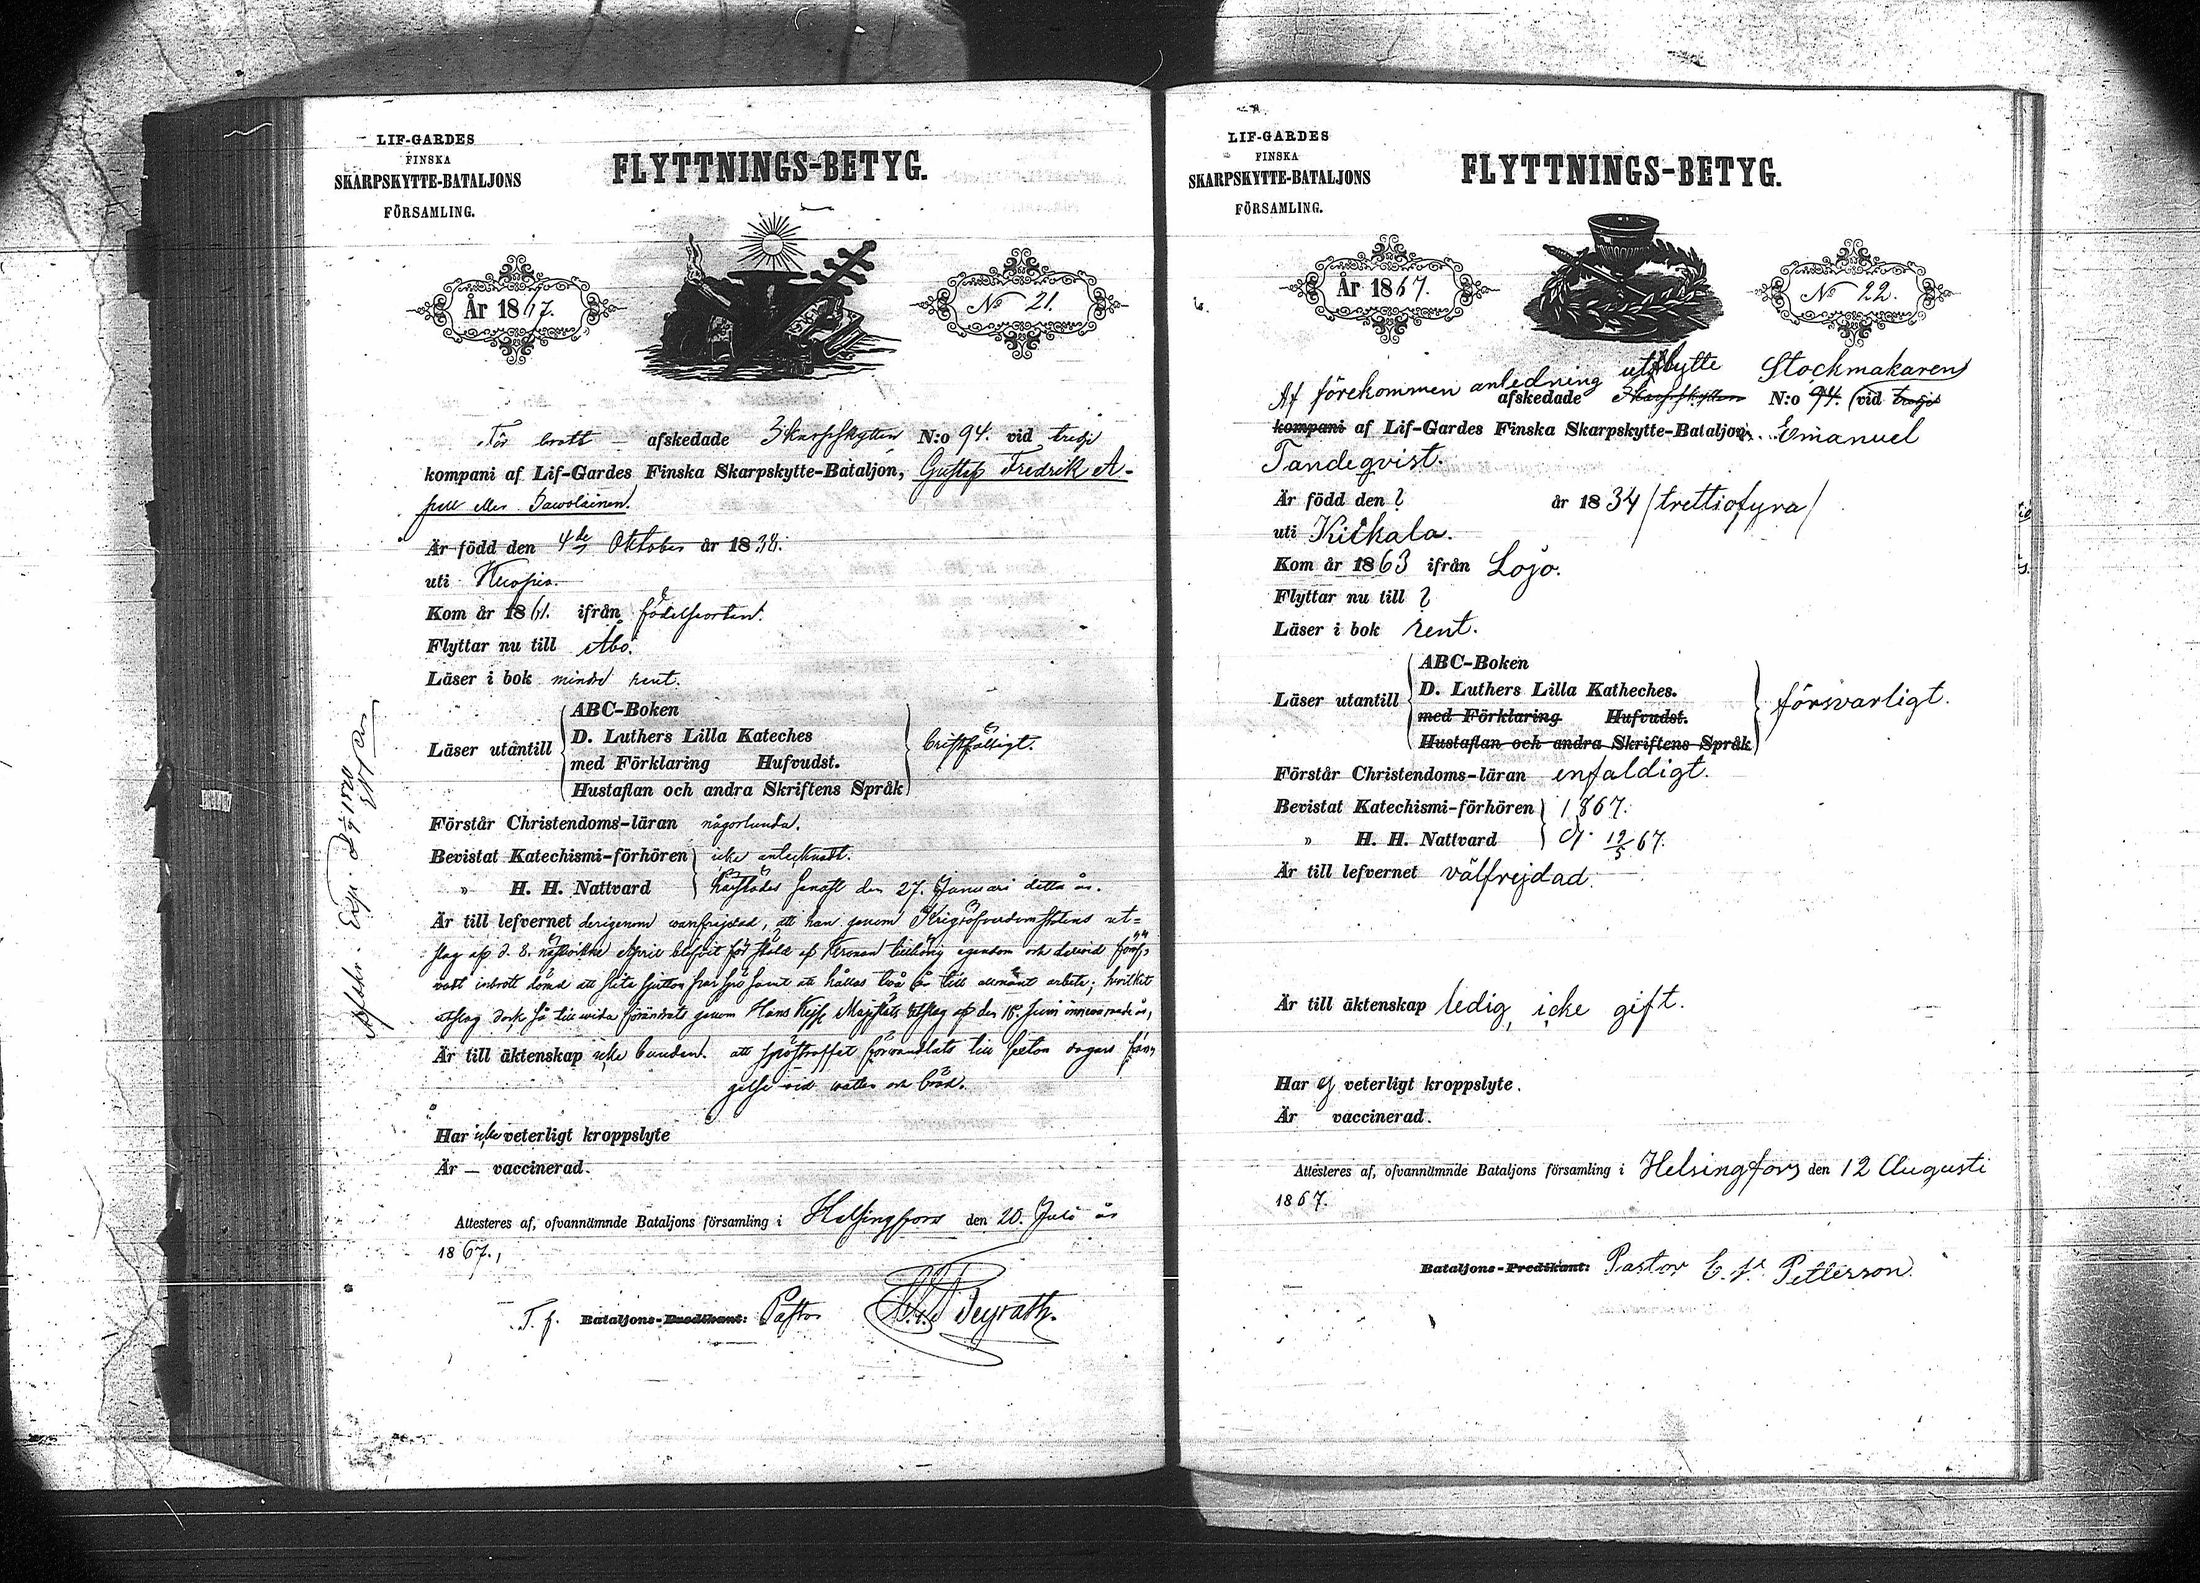 LIF-GARDES
FINSKA
SKARPSKYTTE-BATALJONS
FÖRSAMLING.
FLYTTNINGS-BETYG.
År 1867.
No 21.
För brott — afskedade Skarpskytten N:o 94. vid tredje
kompani af Lif-Gardes Finska Skarpskytte-Bataljon, Gustaf Fredrik A-
pell eller Sawolainen.
Är född den 4de Oktober år 1838.
uti Kuopio.
Kom år 1861. ifrån födelseorten.
Flyttar nu till Åbo.
Läser i bok mindre rent.
Läser utantill
ABC-Boken
D. Luthers Lilla Kateches
med Förklaring Hufvudst.
Hustaflan och andra Skriftens Språk
bristfälligt.
Förstår Christendoms-läran någorlunda.
Bevistat Katechismi-förhören icke antecknadt.
" H. H. Nattvard härstädes senast den 27. Januari detta år.
Är till lefvernet derigenom wanfrejdad, att han genom Krigsöfverdomstolens ut-
slag af d. 8. nästvikne April blifvit för stöld af Kronan tillhörig egendom och dervid föröf-
vadt inbrott dömd att slita sjutton par spö samt att hållas två år till allmänt arbete; hvilket
utslag dock så till vida förändrats genom Hans Kejs. Majestäts utslag af den 18. Juni innevarande år,
Är till äktenskap icke bunden. att spöstraffet förvandlats till sexton dagars fän-
gelse vid watten och bröd.
Har icke veterligt kroppslyte
Är — vaccinerad.
Attesteres af, ofvannämnde Bataljons församling i Helsingfors den 20. Juli år
1867.,
T. f. Bataljons-Predikant: Pastor
LIF-GARDES
FINSKA
SKARPSKYTTE-BATALJONS
FÖRSAMLING.
FLYTTNINGS-BETYG.
År 1867.
No 22.
Af förekommen anledning utbytte Stockmakaren
afskedade Skarpskytten N:o 94. (vid tredje
kompani af Lif-Gardes Finska Skarpskytte-Bataljon. Emanuel
Tandeqvist.
Är född den ? år 1834 /trettiofyra/
uti Kiikala.
Kom år 1863 ifrån Lojo.
Flyttar nu till ?
Läser i bok rent.
Läser utantill
ABC-Boken
D. Luthers Lilla Katheches.
med Förklaring Hufvudst.
Hustaflan och andra Skriftens Språk
försvarligt.
Förstår Christendoms-läran enfaldigt.
Bevistat Katechismi-förhören 1867.
" H. H. Nattvard d. 12/5 67.
Är till lefvernet välfrejdad.
Är till äktenskap ledig, icke gift.
Har ej veterligt kroppslyte.
Är vaccinerad.
Attesteres af, ofvannämnde Bataljons församling i Helsingfors den 12 Augusti
1867.
Bataljons-Predikant: Pastor Petterson.